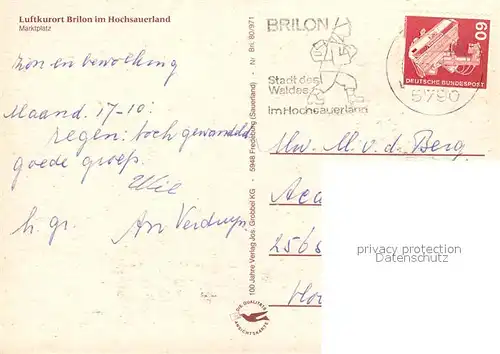 Luftkurort Brilon im Hochsauerland
Marktplatz
zon en bewolking
Maand. 17-10:
regen: toch gewandeld
goede groep.
Wie
h. gr. An
100 Jahre Verlag Jos. Grobbel KG · 5948 Fredeburg (Sauerland) · Nr Bri. 80/971
DIE QUALITÄTS
ANSICHTSKARTE
BRILON
Stadt des
Waldes
im Hochsauerland
60
DEUTSCHE BUNDESPOST
5790
Mw. M. v. d. Berg
Aca
256
privacy protection
Datenschutz